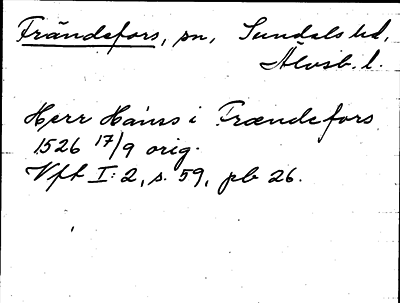 Frändefors, sn, Sundals hd,
Älvsb. l.
Herr Hanss i Frændefors
1526 17/9 orig.
Vft I: 2, s. 59, pb 26.